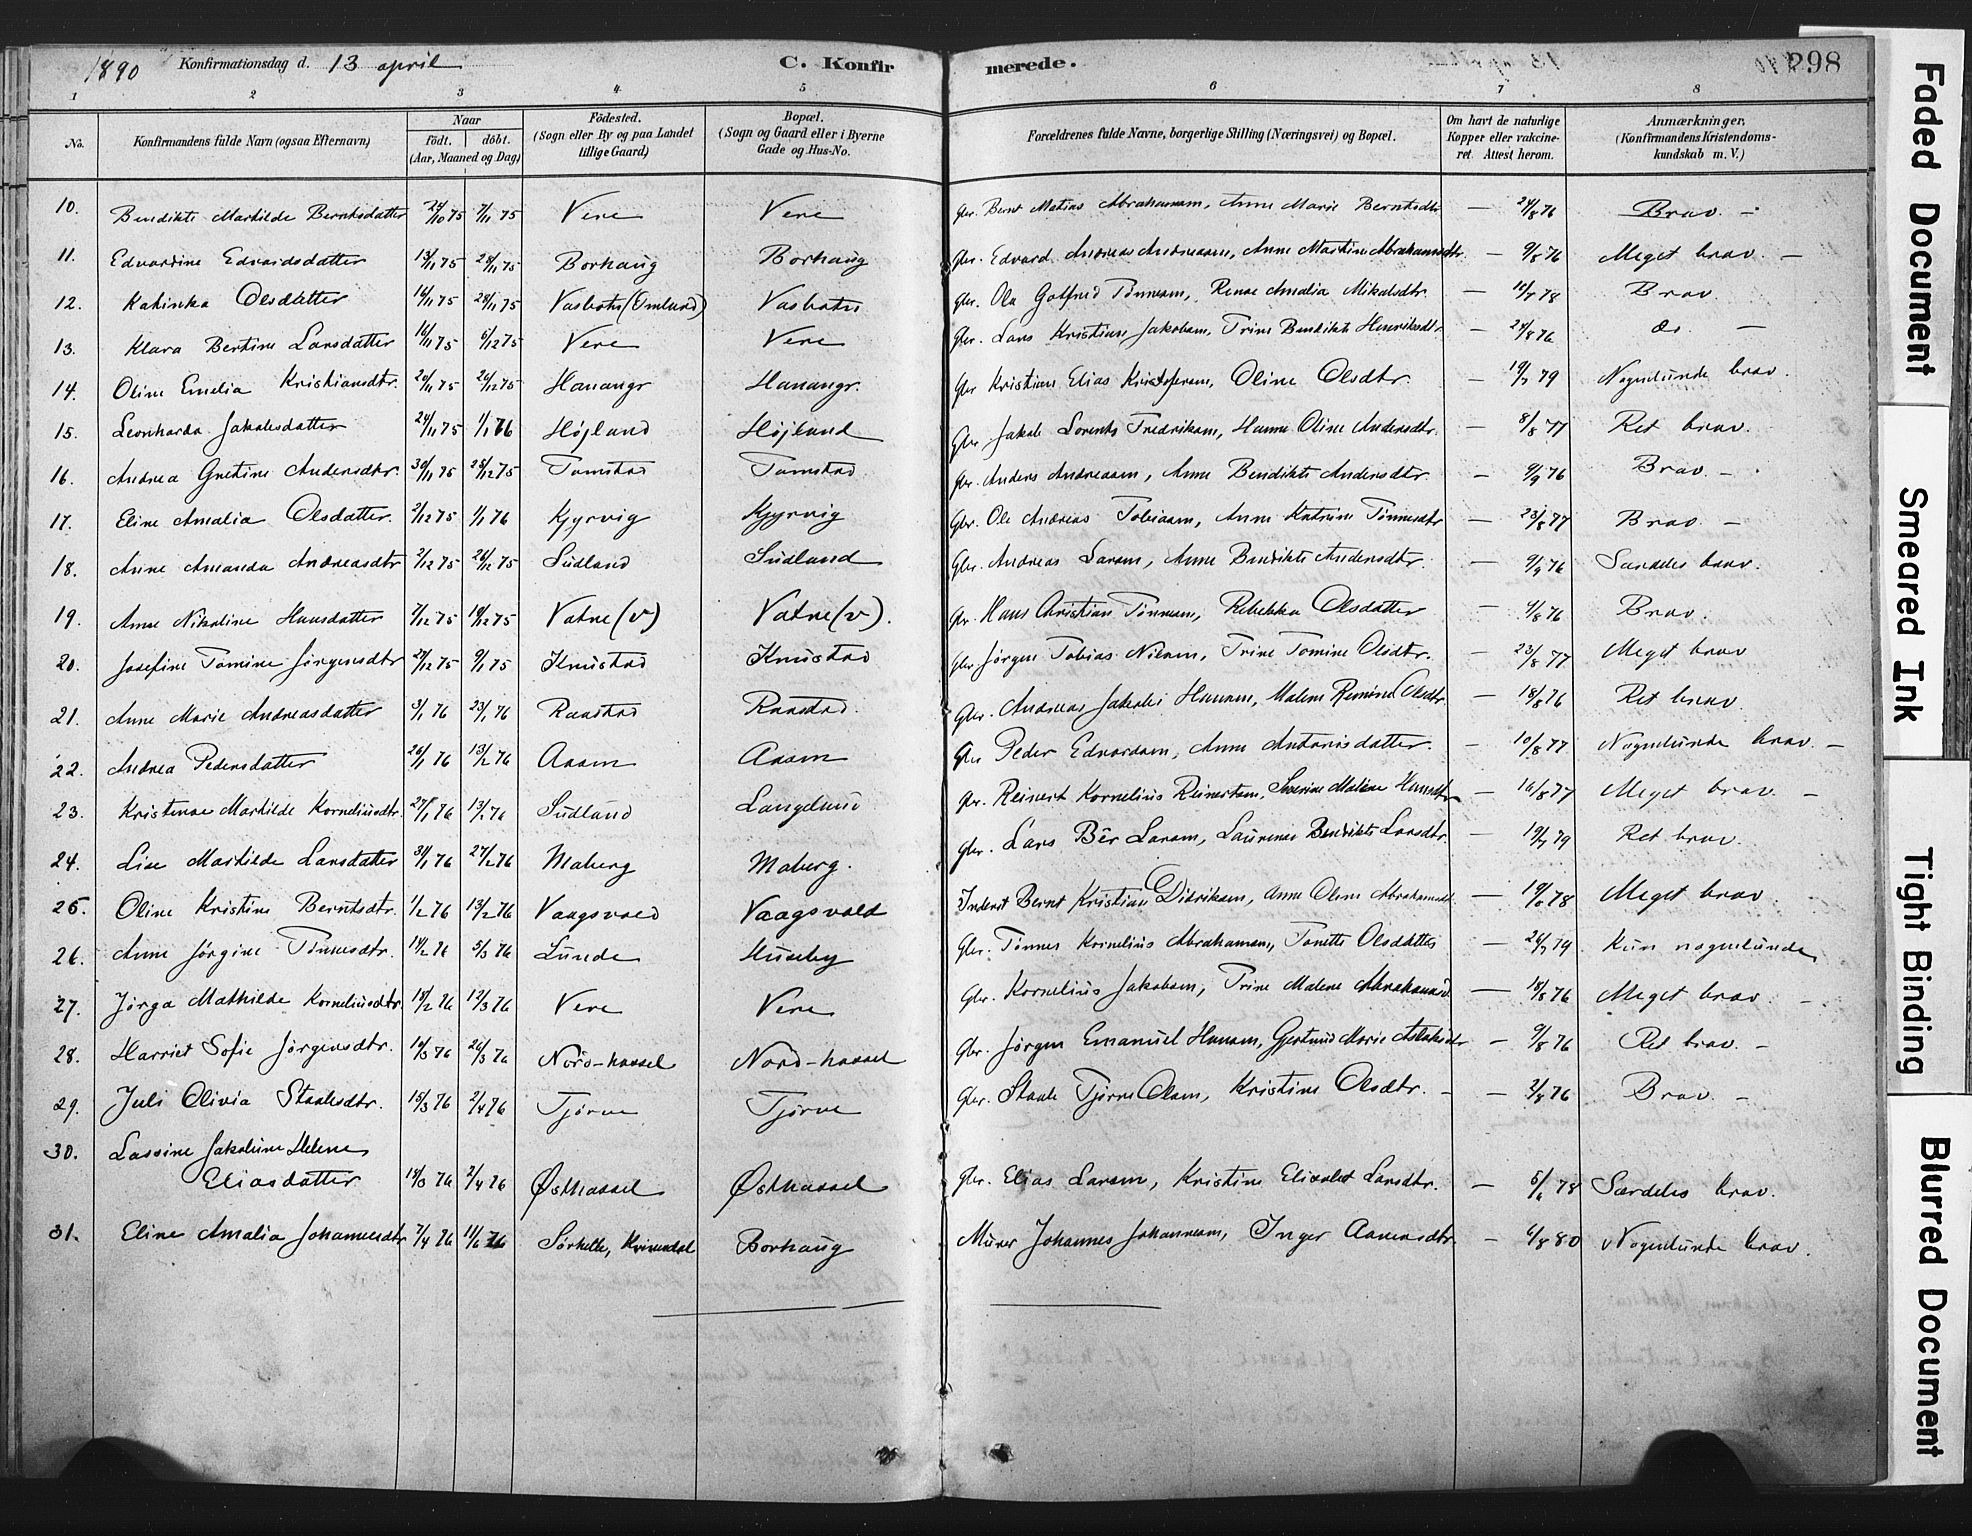 1890 Konfirmationsdag d. 13 april C. Konfirmerede. 298
1 2 3 4 5 6 7 8
No. Konfirmandens fulde Navn (ogsaa Efternavn) Naar født. døbt. (Aar, Maaned og Dag) Fødested. (Sogn eller By og paa Landet tillige Gaard) Bopæl. (Sogn og Gaard eller i Byerne Gade og Hus-No. Forældrenes fulde Navne, borgerlige Stilling (Næringsvei) og Bopæl. Om havt de naturlige Kopper eller vakcineret Attest herom. Anmærkninger, (Konfirmandens Kristendomskundskab m. V.)
10. Bendikte Martilde Berntsdatter 24/10 75 7/11 75 Vere Vere Gbr. Bernt Matias Abrahamsen, Anne Marie Berntsdtr — 24/8 76 Brav. —
11. Edvardine Edvardsdatter 13/11 75 28/11 75 Borhaug Borhaug Gbr. Edvard Andreas Andreassen, Anne Martine Abrahamsdtr. — 9/8 76 Meget brav. —
12. Katinka Olsdatter 16/11 75 28/11 75 Vasbotn (Omlund) Vasbotn Gbr. Ola Gotfred Tønnesen, Renae Amalia Mikalsdtr. — 10/7 78 Brav.
13. Klara Bertine Larsdatter 16/11 75 6/12 75 Vere Vere Gbr. Lars Kristian Jakobsen, Trine Bendikte Henriksdtr. — 24/8 76 do. —
14. Oline Emelia Kristiansdtr. 20/11 75 26/12 75 Hanangr Hanangr. Gbr Kristian Elias Kristofersen, Oline Olsdtr. — 19/7 79 Nogenlunde brav.
15. Leonharda Jakobsdatter 24/11 75 1/1 76 Højland Højland Gbr Jakob Lorents Fredriksen, Hanne Oline Andersdtr. — 8/8 77 Ret brav.
16. Andrea Gretine Andersdtr. 30/11 75 25/12 75 Tomstad Tomstad Gbr. Anders Andreassen, Anne Bendikte Andersdtr. — 9/9 76 Brav —
17. Eline Amalia Olsdatter. 2/12 75 1/1 76 Kjyrvig Kjyrvig Gbr. Ole Andreas Tobiassen, Anne Katrine Tønnesdtr — 23/8 77 Brav —
18. Anne Amanda Andreasdtr 2/12 75 26/12 75 Sudland Sudland Gbr. Andreas Larsen, Anne Bendikte Andersdtr. — 9/9 76 Særdeles brav.
19. Anne Nikoline Hansdatter 7/12 75 19/12 75 Vatne (v) Vatne (v). Gbr. Hans Christian Tønnesen, Rebekka Olsdatter — 9/8 76 Brav.
20. Josefine Tomine Jørgensdtr 27/12 75 9/1 75 Knustad Knustad Gbr Jørgen Tobias Nilsen, Trine Tomine Olsdtr. — 23/8 77 Meget brav
21. Anne Marie Andreasdatter 3/1 76 23/1 76 Raastad Raastad. Gbr. Andreas Jakob Hansen, Malene Olsdtr. — 18/8 76 Ret brav.
22. Andrea Pedersdatter 26/1 76 13/2 76 Aasm Aasm Gbr Peder Edvardsen, Anne Antonisdatter. — 10/8 77. Nogenlunde brav. —
23. Kristense Martilde Korneliusdtr. 27/1 76 13/2 76 Sudland Langelund Gbr. Reinert Kornelius Reinertsen, Severine Malene Hansdtr — 16/8 77 Meget brav. —
24. Lise Martilde Larsdatter 31/1 76 27/2 76 Maberg Maberg. Gbr. Lars Bêr Larsen, Laurense Bendikte Larsdtr. — 19/7 79 Ret brav.
25. Oline Kristine Berntsdtr. 1/2 76 13/2 76 Vaagsvold Vaagsvold Inderst Bernt Kristian Didriksen, Anne Oline Abrahamsdtr — 19/6 78 Meget brav
26. Anne Jørgine Tønnesdtr. 14/2 76 5/3 76 Lunde Huseby Gbr. Tønnes Kornelius Abrahamsen, Tonette Olsdatter — 24/7 79 Kun nogenlunde
27. Jørga Mathilde Korneliusdtr. 18/2 76 12/3 76 Vere Vere Gbr. Kornelius Jakobsen, Trine Malene Abrahamsd — 18/8 76 Meget brav. —
28. Harriet Sofie Jørgensdtr. 10/3 76 26/3 76 Nord-hassel Nord-hassel Gbr. Jørgen Emanuel Hansen, Gjertrud Marie Aslaksdtr — 9/8 76 Ret brav. —
29. Juli Olivia Staalesdtr. 15/3 76 2/4 76 Tjørve Tjørve Gbr. Staale Tjørve Olsen, Kristine Olsdtr. — — 2/8 76 Brav. —
30. Lassine Jakobine Helene
Eliasdatter 18/3 76 2/4 76 Østhassel Østhassel Gbr. Elias Larsen, Kristine Elisabet Larsdtr. — 5/6 78 Særdeles brav.
31. Eline Amalia Johannesdtr 7/4 76 11/6 76 Sørhelle, Kvinesdal Borhaug Murer Johannes Johannesen, Inger Aanensdtr — 6/8 80 Nogenlunde brav.
Faded Document
Smeared Ink
Tight Binding
Blurred Document